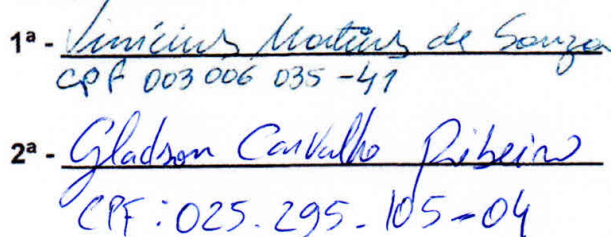 1ª - Vinícius Martins de Souza
CPF 003 006 035-41
2ª - Gladson Carvalho Ribeiro
CPF: 025.295.105-04